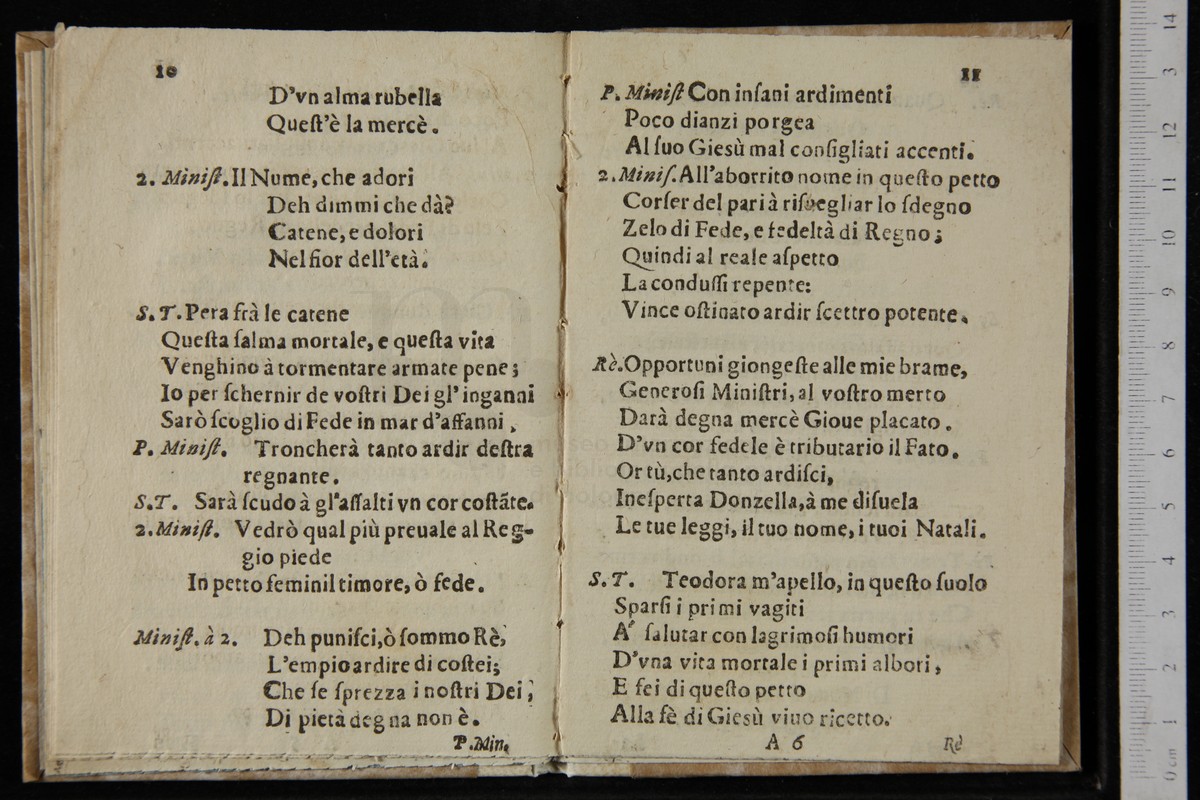 10
D'vn alma rubella
Queſt'è la mercè.
2. Miniſt. Il Nume, che adori
Deh dimmi che dà?
Catene, e dolori
Nel fior dell'età.
S. T. Pera frà le catene
Queſta ſalma mortale, e queſta vita
Venghino à tormentare armate pene;
Io per ſchernir de voſtri Dei gl'inganni
Sarò ſcoglio di Fede in mar d'affanni,
P. Miniſt. Troncherà tanto ardir deſtra
regnante.
S.T. Sarà ſcudo à gl'aſſalti vn cor coſtãte.
2. Miniſt. Vedrò qual più preuale al Reg-
gio piede
In petto feminil timore, ò fede.
Miniſt. à 2. Deh puniſci, ò ſommo Rè,
L'empio ardire di coſtei;
Che ſe ſprezza i noſtri Dei,
Di pietà degna non è.
P. Min.
11
P. Miniſt Con inſani ardimenti
Poco dianzi porgea
Al ſuo Giesù mal conſigliati accenti.
2. Miniſ. All'aborrito nome in queſto petto
Corſer del pari à riſuegliar lo ſdegno
Zelo di Fede, e fedeltà di Regno;
Quindi al reale aſpetto
La conduſſi repente:
Vince oſtinato ardir ſcettro potente.
Rè. Opportuni giongeſte alle mie brame,
Generoſi Miniſtri, al voſtro merto
Darà degna mercè Gioue placato.
D'vn cor fedele è tributario il Fato.
Or tù, che tanto ardiſci,
Ineſperta Donzella, à me diſuela
Le tue leggi, il tuo nome, i tuoi Natali.
S. T. Teodora m'apello, in queſto ſuolo
Sparſi i primi vagiti
A' ſalutar con lagrimoſi humori
D'vna vita mortale i primi albori,
E fei di queſto petto
Alla fè di Giesù viuo ricetto.
A 6 Rè